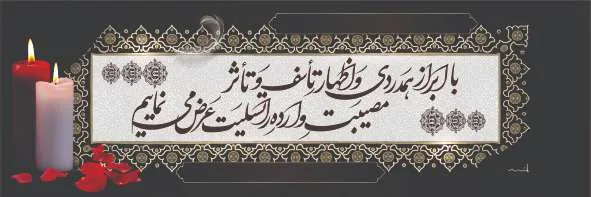 با ابراز همدردی و اظهار تأسف و تأثر
مصیبت وارده را تسلیت عرض می نماییم